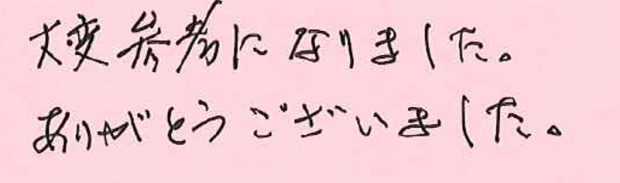 大変参考になりました。
ありがとうございました。